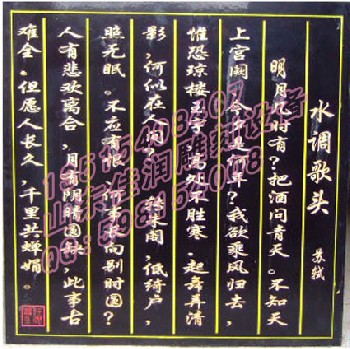 水调歌头
苏轼
明月几时有?把酒问青天。不知天
上宫阙,今夕是何年?我欲乘风归去,
惟恐琼楼玉宇,高处不胜寒。起舞弄清
影,何似在人间!转朱阁,低绮户,
照无眠。不应有恨,何事长向别时圆?
人有悲欢离合,月有阴晴圆缺,此事古
难全。但愿人长久,千里共婵娟。
山东佳润雕刻设备